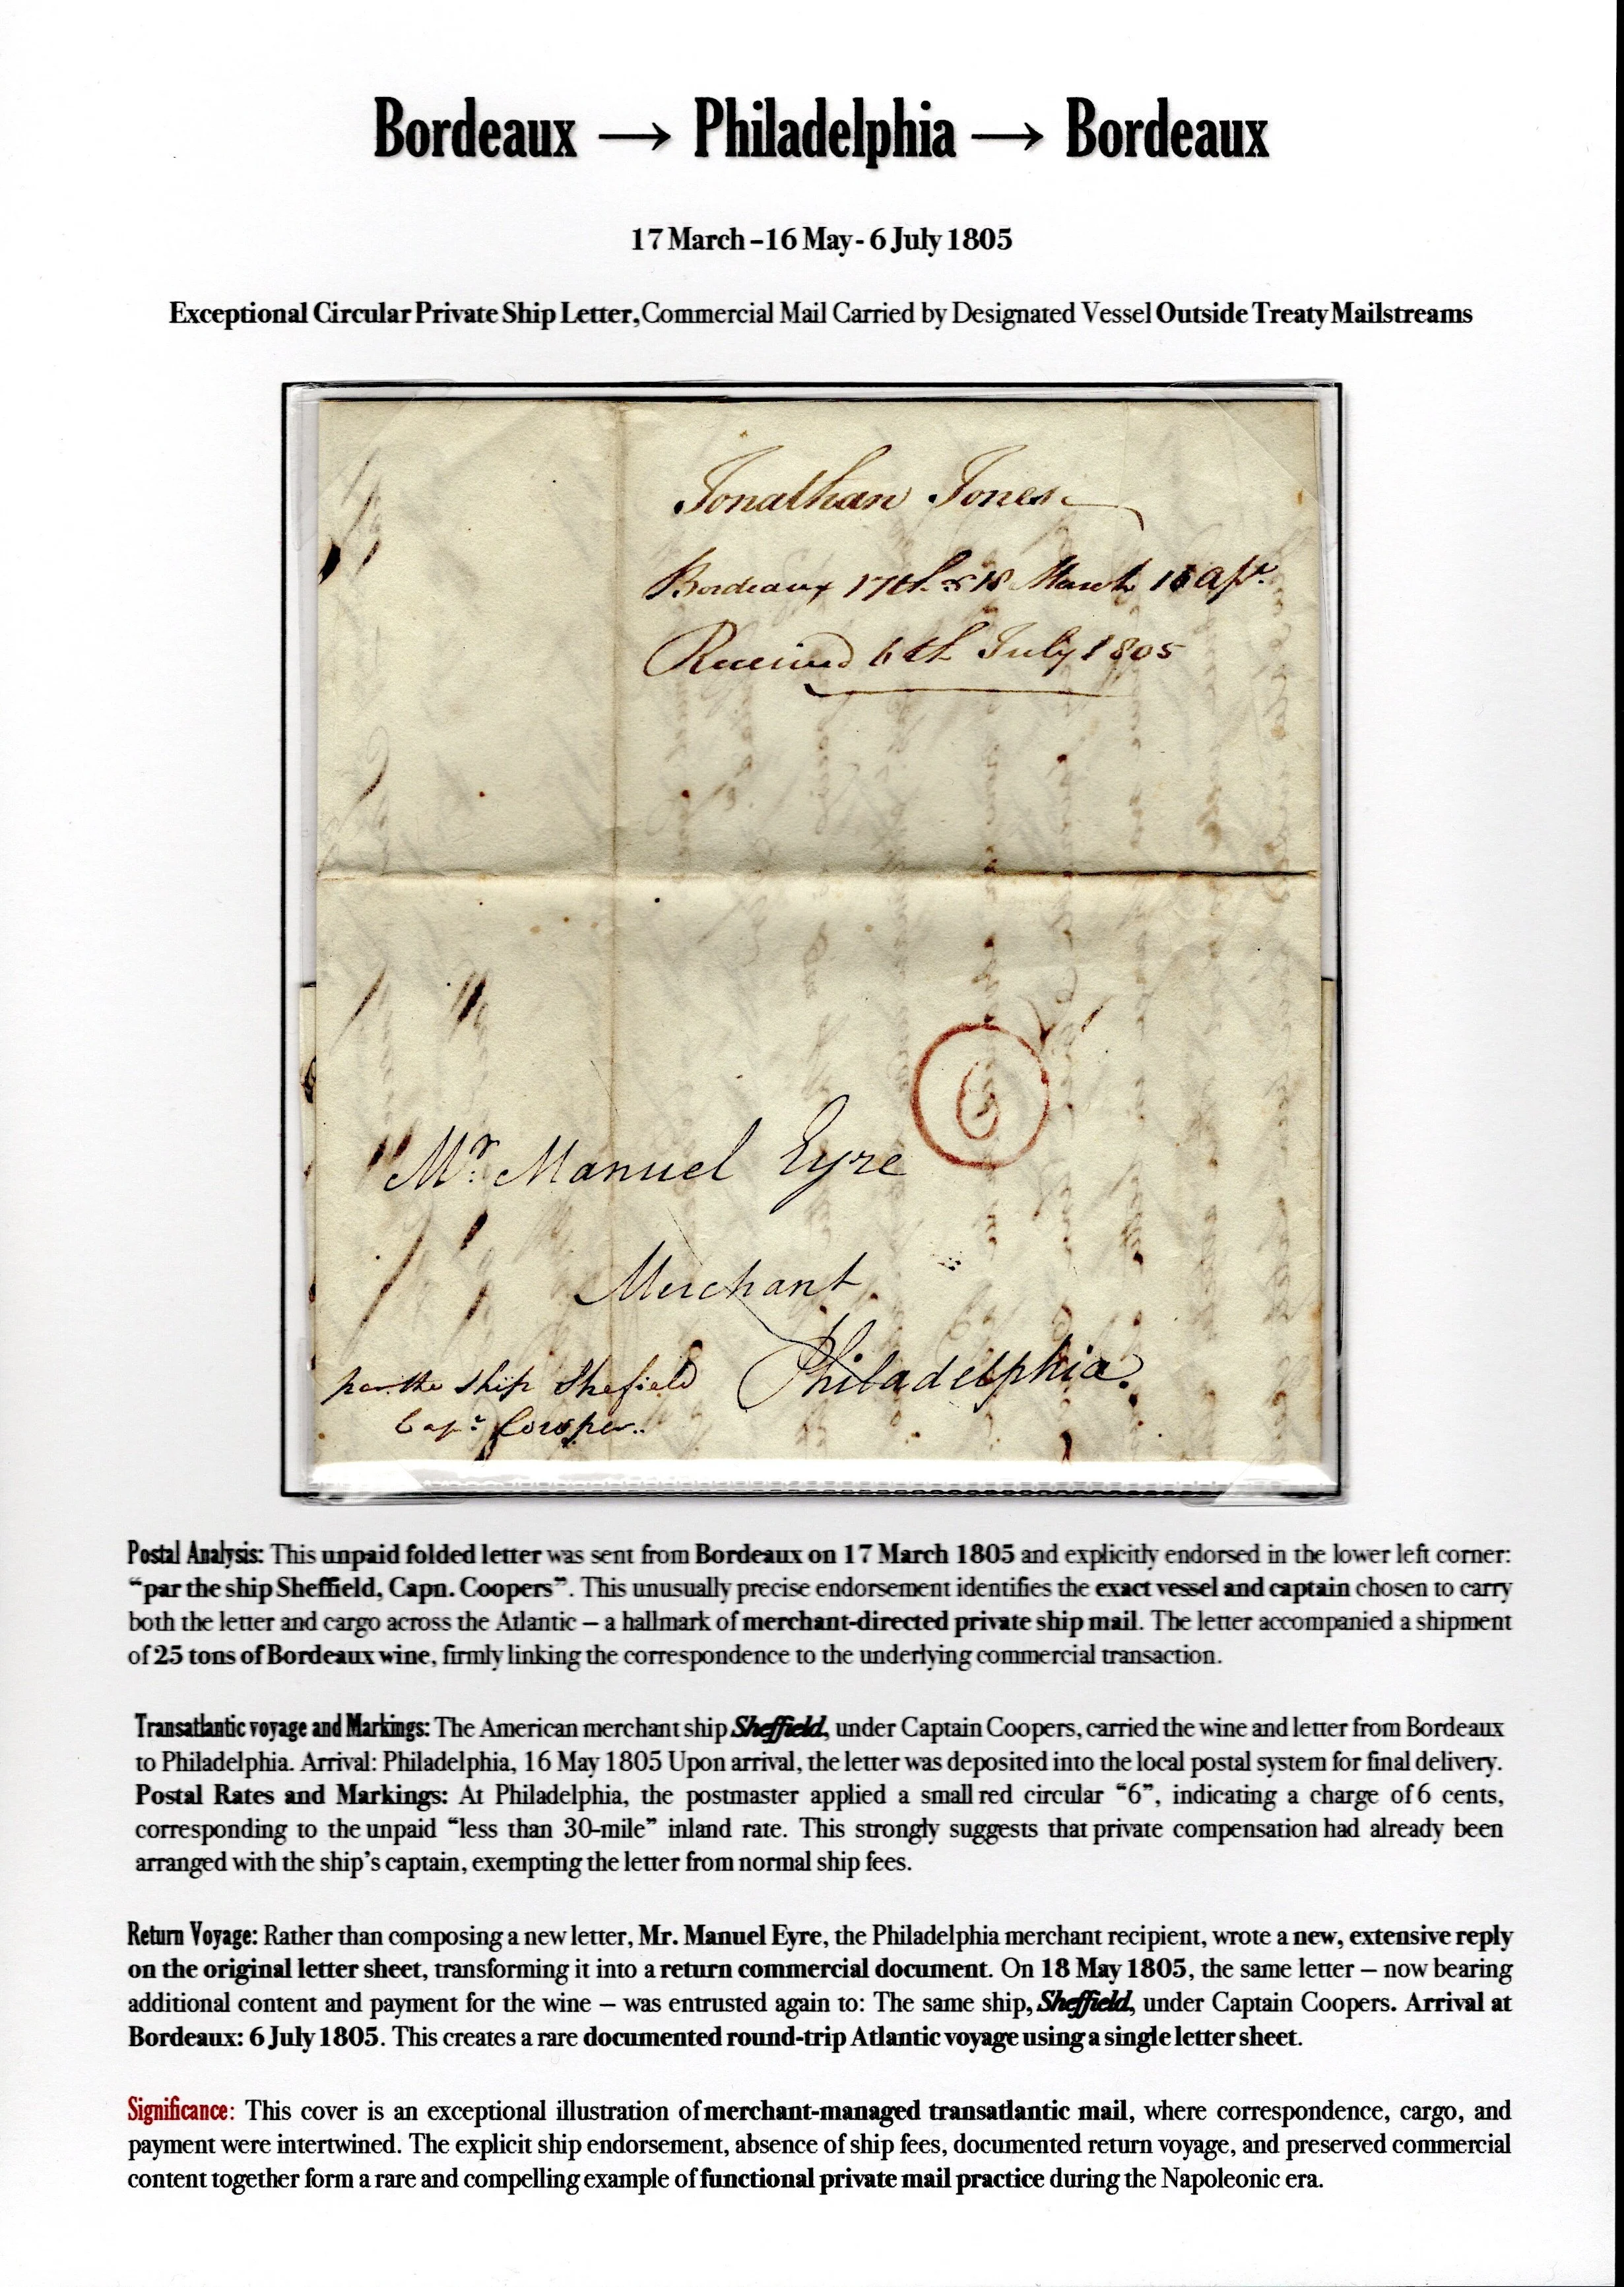 Bordeaux → Philadelphia → Bordeaux
17 March – 16 May - 6 July 1805
Exceptional Circular Private Ship Letter, Commercial Mail Carried by Designated Vessel Outside Treaty Mailstreams
Jonathan Jones
Bordeaux 17th & 18 March 16
Received 6th July 1805
6
Mr. Manuel Eyre
Merchant
Philadelphia.
per the ship Shefield
Capn. Cowper..
Postal Analysis: This unpaid folded letter was sent from Bordeaux on 17 March 1805 and explicitly endorsed in the lower left corner:
“par the ship Sheffield, Capn. Coopers”. This unusually precise endorsement identifies the exact vessel and captain chosen to carry
both the letter and cargo across the Atlantic – a hallmark of merchant-directed private ship mail. The letter accompanied a shipment
of 25 tons of Bordeaux wine, firmly linking the correspondence to the underlying commercial transaction.
Transatlantic voyage and Markings: The American merchant ship Sheffield, under Captain Coopers, carried the wine and letter from Bordeaux
to Philadelphia. Arrival: Philadelphia, 16 May 1805 Upon arrival, the letter was deposited into the local postal system for final delivery.
Postal Rates and Markings: At Philadelphia, the postmaster applied a small red circular “6”, indicating a charge of 6 cents,
corresponding to the unpaid “less than 30-mile” inland rate. This strongly suggests that private compensation had already been
arranged with the ship’s captain, exempting the letter from normal ship fees.
Return Voyage: Rather than composing a new letter, Mr. Manuel Eyre, the Philadelphia merchant recipient, wrote a new, extensive reply
on the original letter sheet, transforming it into a return commercial document. On 18 May 1805, the same letter – now bearing
additional content and payment for the wine – was entrusted again to: The same ship, Sheffield, under Captain Coopers. Arrival at
Bordeaux: 6 July 1805. This creates a rare documented round-trip Atlantic voyage using a single letter sheet.
Significance: This cover is an exceptional illustration of merchant-managed transatlantic mail, where correspondence, cargo, and
payment were intertwined. The explicit ship endorsement, absence of ship fees, documented return voyage, and preserved commercial
content together form a rare and compelling example of functional private mail practice during the Napoleonic era.